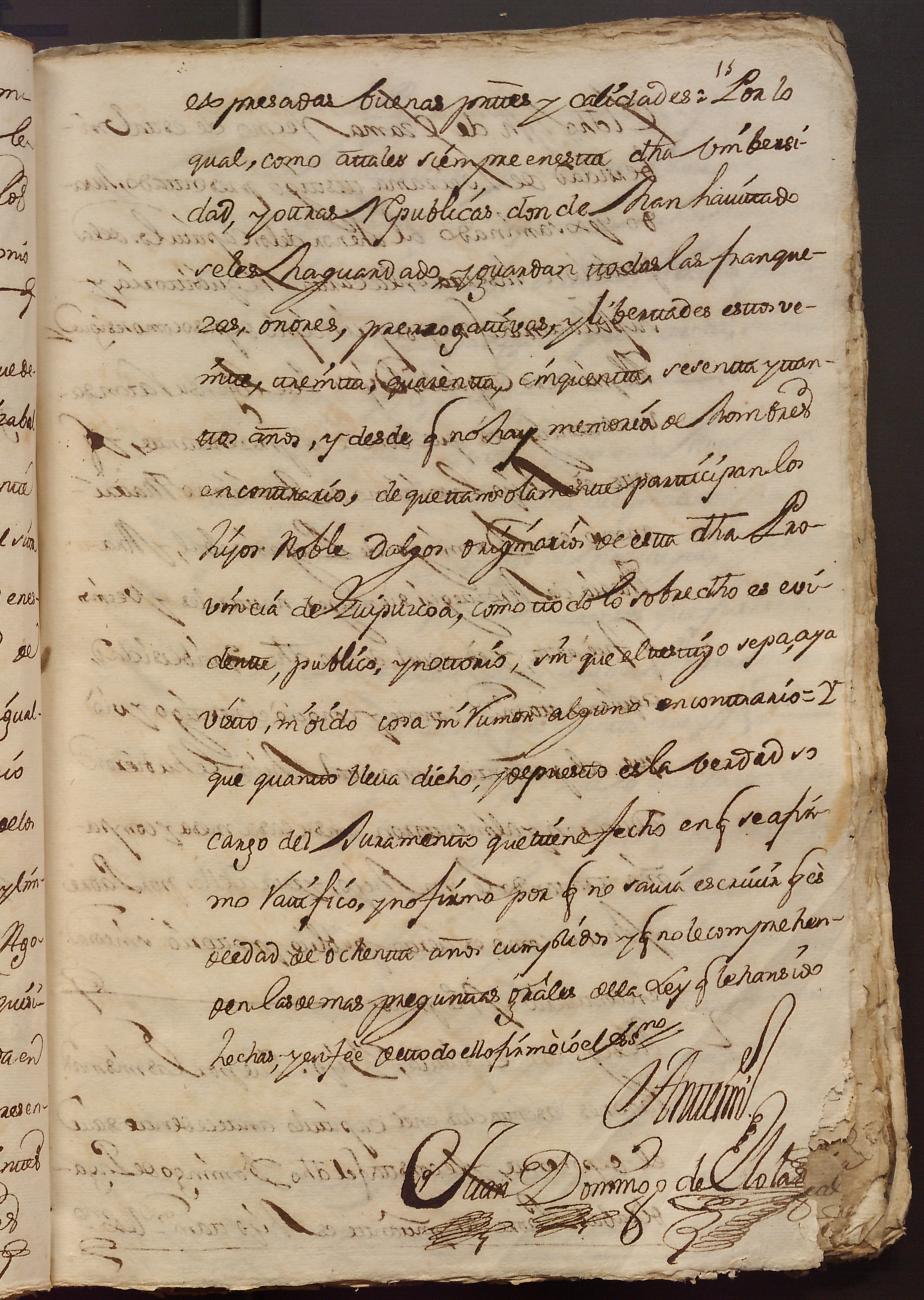 15
expresadas buenas partes y calidades: Por lo
qual, como atales siempre enesta dha Vnibersi-
dad, y otras Republicas donde han havitado
seles ha guardado, y guardan todas las franque-
zas, onores, prerrogativas, y libertades estos ve-
inte, treinta, quarenta, cinquenta, sesenta y tan-
tos años, y desde q no hay memoria de hombres
en contrario, de que tan solamente participan los
hijos Noble Dalgos originarios de esta dha Pro-
vincia de Guipuzcoa, como todo lo sobredho es evi-
dente, publico, y notorio, sin que el testigo sepa, aya
visto, ni oido cosa ni rumor alguno en contrario = Y
que quanto lleva dicho, y depuesto es la verdad so
cargo del Juramento que tiene fecho en q se afir-
mo ratifico, y no firmo por q no savia escrivir q es
de edad de ochenta años cumplidos y q no le comprehen-
den las demas preguntas grales de la Ley q le han sido
hechas, y en fee de todo ello firmè io el essno
Antemi
Juan Domingo de